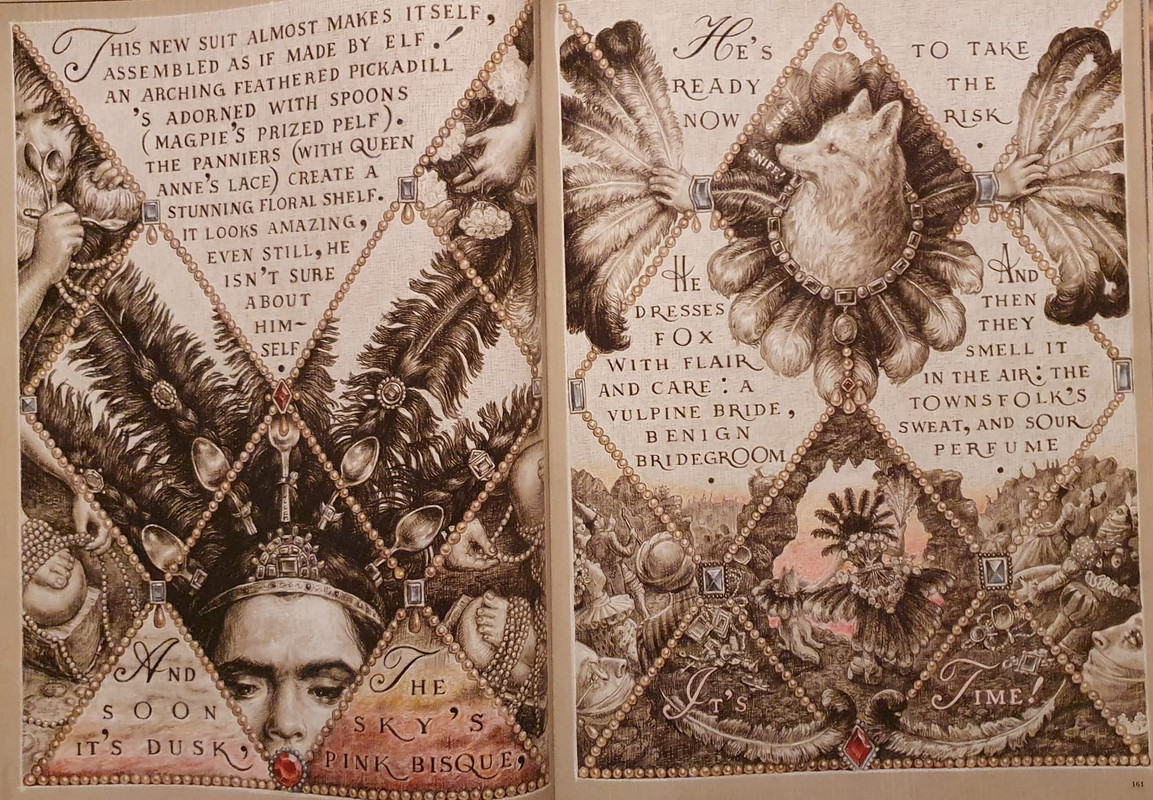 THIS NEW SUIT ALMOST MAKES ITSELF,
ASSEMBLED AS IF MADE BY ELF!
AN ARCHING FEATHERED PICKADILL
'S ADORNED WITH SPOONS
(MAGPIE'S PRIZED PELF).
THE PANNIERS (WITH QUEEN
ANNE'S LACE) CREATE A
STUNNING FLORAL SHELF.
IT LOOKS AMAZING,
EVEN STILL, HE
ISN'T SURE
ABOUT
HIM-
SELF.
AND
SOON
IT'S DUSK,
THE
SKY'S
PINK BISQUE,
HE'S
READY
NOW
TO TAKE
THE
RISK.
SNIFF
HE
DRESSES
FOX
WITH FLAIR
AND CARE: A
VULPINE BRIDE,
BENIGN
BRIDEGROOM.
AND
THEN
THEY
SMELL IT
IN THE AIR: THE
TOWNSFOLK'S
SWEAT, AND SOUR
PERFUME.
IT'S
TIME!
161